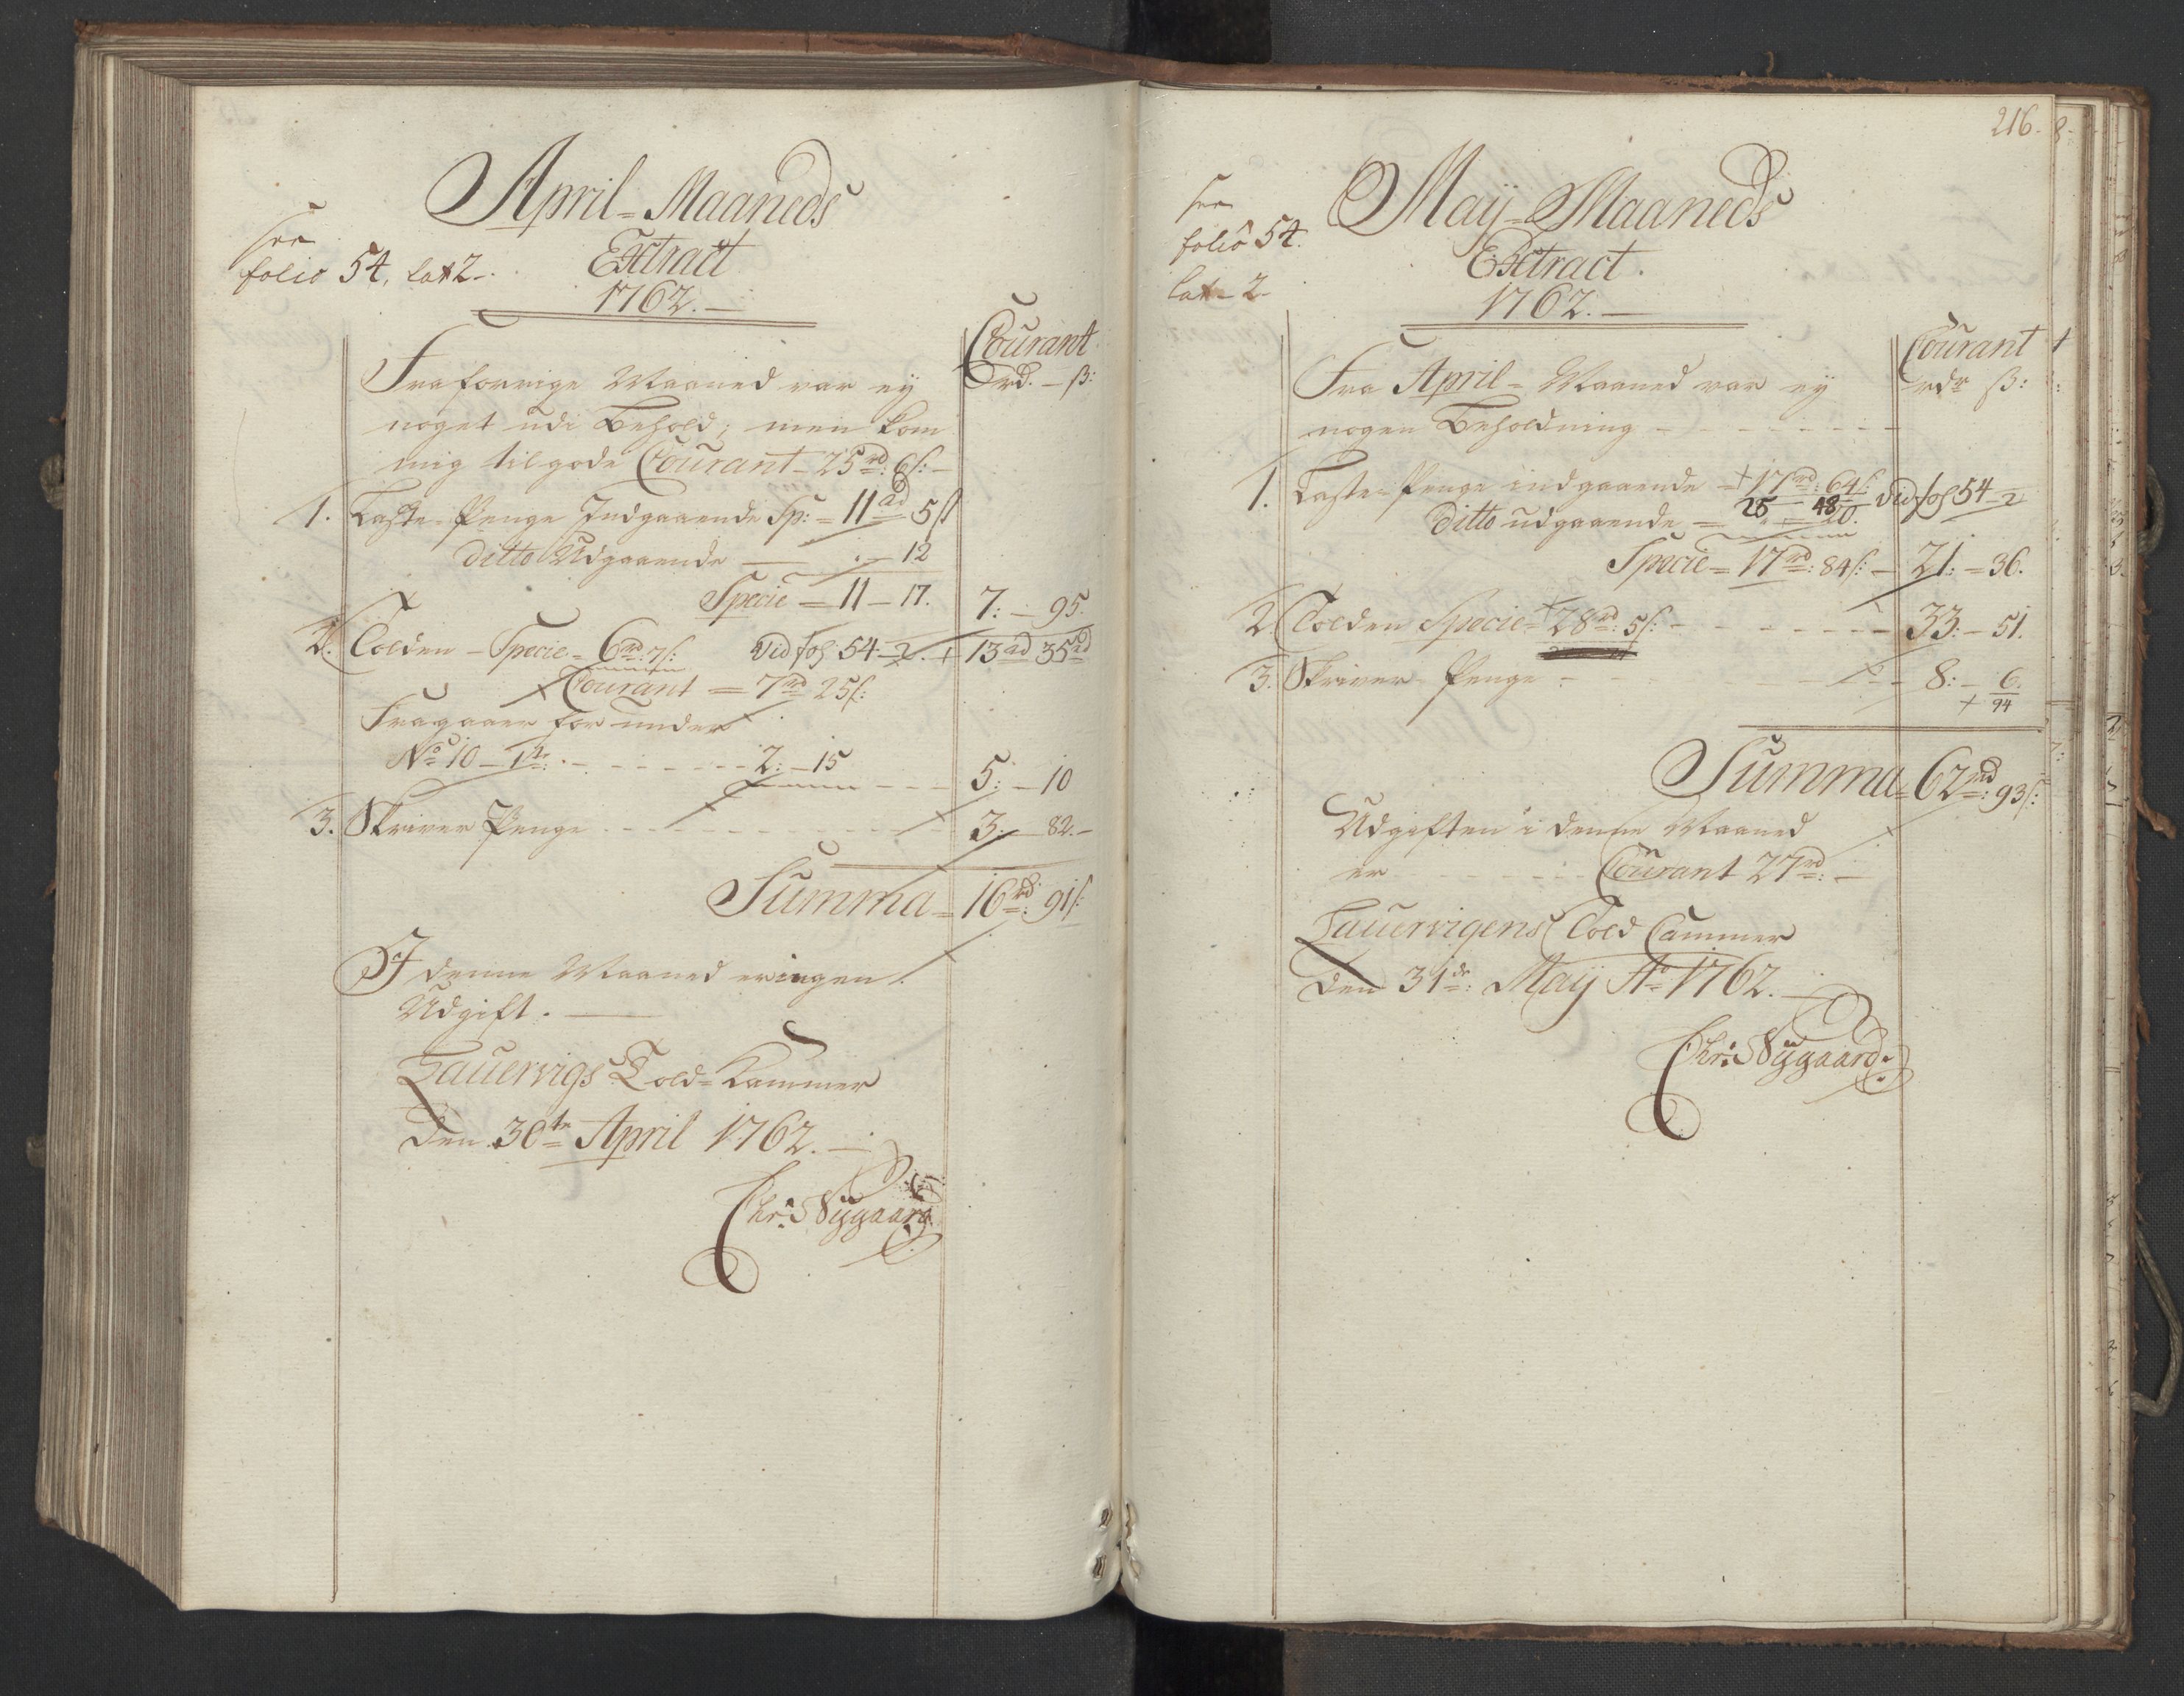 April - Maaneds
see
folio 54, lat 2.
Extract
1762.
Courant
rd. - ß:
Fra forrige Maaned var ey
noget udi Behold; men kom
mig tilgode Courant - 25 rd: 6 s: -
1. Laste-Penge Indgaaende Sp: = 11 rd 5 s
ditto Udgaaende — . — 12
Specie = 11 - 17. 7: - 95.
2. Tolden - Specie = 6 rd: 7 s: Vid fol 54 - 2. + 13 rd 35
Courant = 7 rd 25 s:
Fragaaer for under
No 10 - 2: - 15 5: - 10
3. Skriver Penge 3: - 82. -
Summa = 16 rd: 91 s:
I denne Maaned er ingen
Udgift. —
Lauervigs Told-Kammer
den 30te April 1762. —
Chr: Nygaard
216.
May - Maaneds
see
folio 54.
lat - 2
Extract.
1762. —
Courant
rdr ß:
Fra April - Maaned var ey
nogen Beholdning
1. Laste-Penge indgaaende = + 17 rd: 64 s:
25 - 48 Vid fol 54 - 2
Ditto udgaaende = " - 20.
Specie = 17 rd: 84 s: - 21: = 36.
2. Tolden Specie = 28 rd: 5 s: - 33: - 51.
3. Skriver Penge 8: - 6.
+ 94
Summa = 62 rd: 93 s:
Udgiften i denne Maaned
er Courant 27 rd: —
Lauervigens Told Cammer
den 31de: May Ao 1762. —
Chr: Nygaard